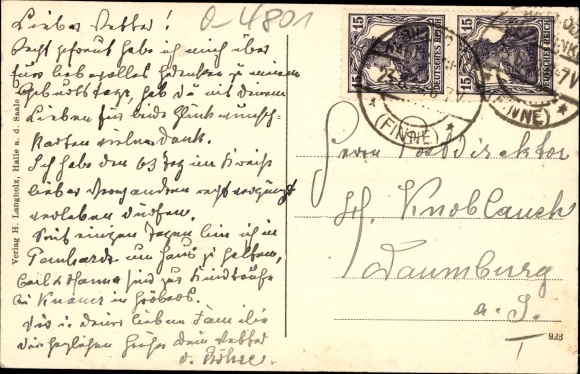 a-4801
Lieber Vetter!
Recht gefreut habe ich mich über
für liebevolles Gedenken zu meinem
Geburtstage, hab Du mit deinen
Lieben für beide Glückwunsch-
karten vielen Dank.
Ich habe den 63 Tag im Kreise
lieber Verwandten recht vergnügt
verleben dürfen.
Seit einigen Tagen bin ich in
um Haus zu halten,
Carl & Hanna sind zur Kindtaufe
bei in Gröbers.
Dir u. deiner lieben Familie
die herzlichen Grüße Dein Vetter
Verlag H. Langholz, Halle a. d. Saale
15 DEUTSCHES REICH 15
15 DEUTSCHES REICH 15
(FINNE)
(FINNE)
Herrn Postdirektor
H. Knoblauch
Naumburg
a. S.